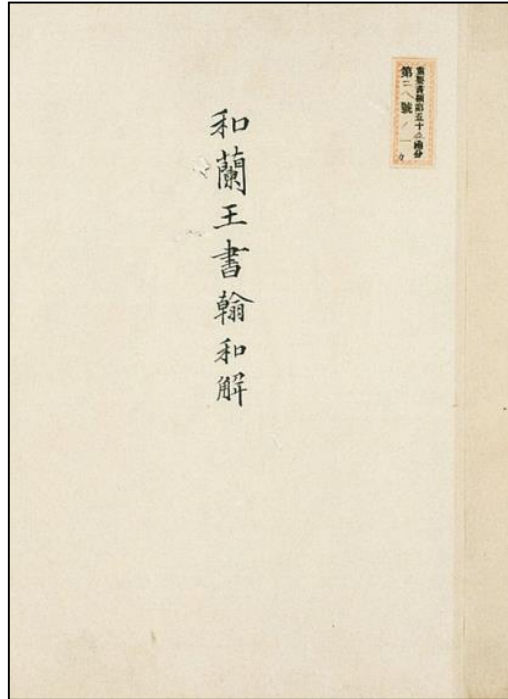 重要書類第五十
第二八號ノ一
和蘭王書翰和解